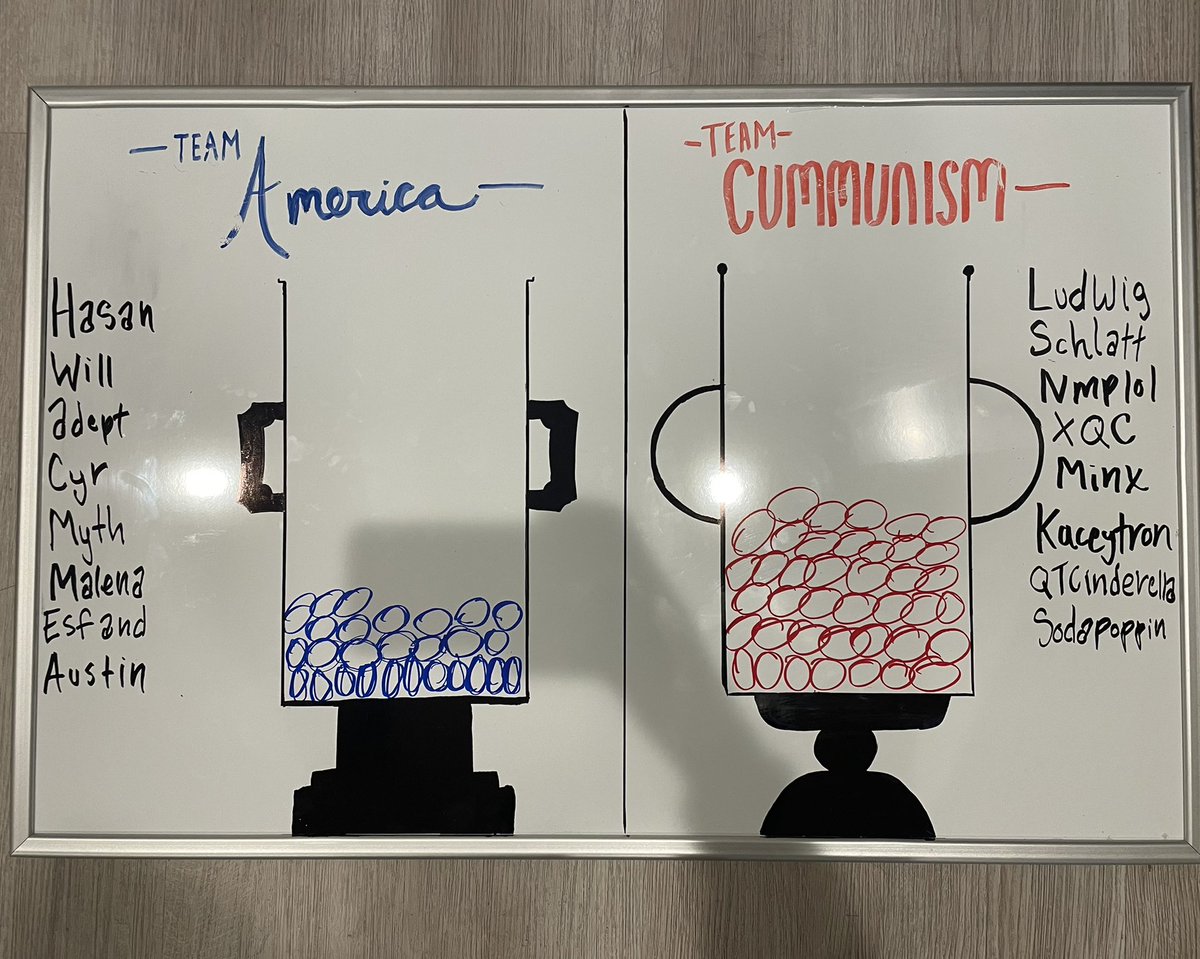 — TEAM
America —
Hasan
Will
adept
Cyr
Myth
Malena
Esfand
Austin
-TEAM-
CUMMUNISM —
Ludwig
Schlatt
Nmplol
XQC
Minx
Kaceytron
QTCinderella
Sodapoppin